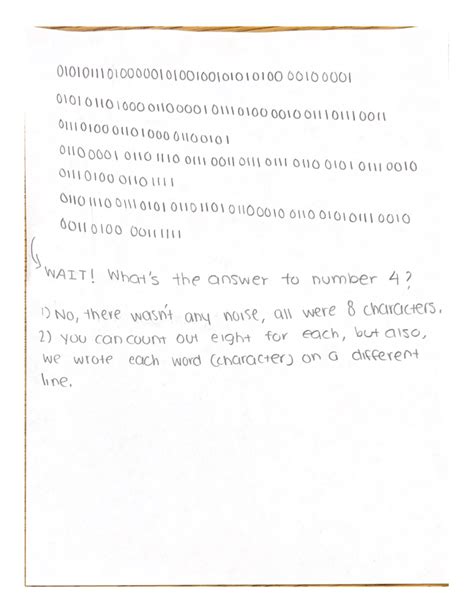 01010111010000010100100101010100 00100001
01010110100001100001 01110100 0010 01110111 0011
01110100 01101000 01100101
01100001 0110 1110 0111 0011 0111 0111 0110 0101 0111 0010
01110100 0110 1111
01101110 0111 0101 01101101 01100010 0110 01010111 0010
0011 0100 00111111
WAIT! What's the answer to number 4?
1) No, there wasn't any noise, all were 8 characters.
2) you can count out eight for each, but also,
we wrote each word (character) on a different
line.